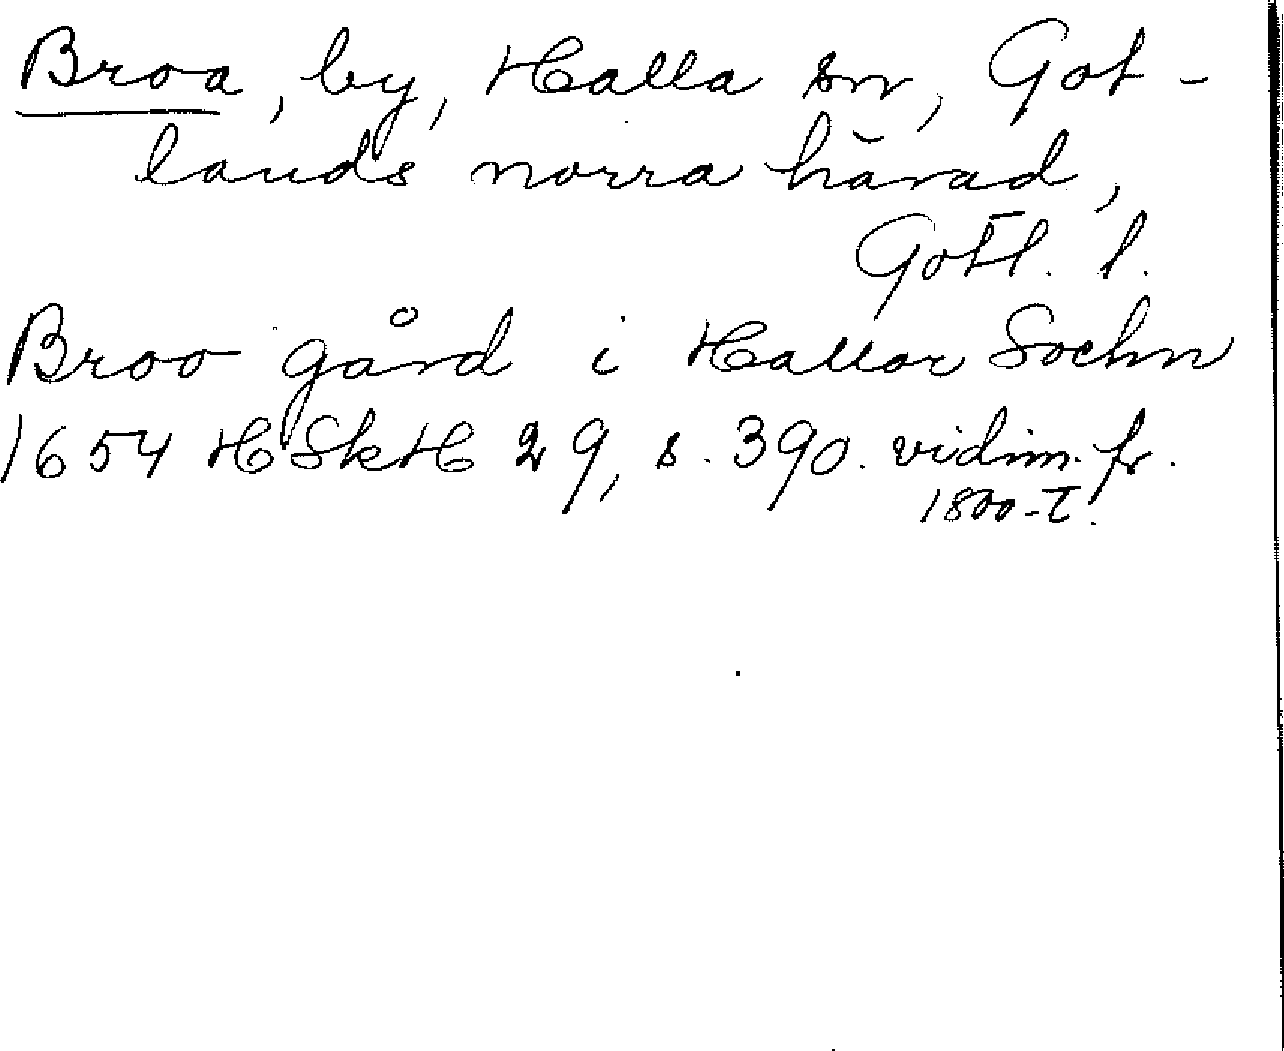 Broa, by, Halla sn, Got-
lands norra härad,
Gotl. l.
Broo gård i Hallar Sochn
1654 HSkH 29, s. 390. vidim. fr.
1800-t.